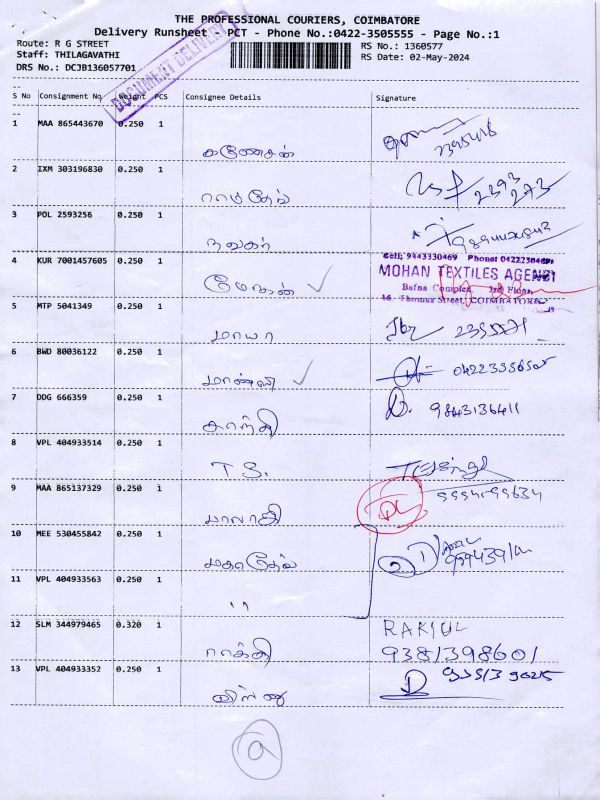 THE PROFESSIONAL COURIERS, COIMBATORE
Delivery Runsheet - PCT - Phone No.:0422-3505555 - Page No.:1
Route: R G STREET
RS No.: 1360577
Staff: THILAGAVATHI
RS Date: 02-May-2024
DRS No.: DCJB136057701
DOCUMENT DELIVERY
S No Consignment No Weight PCS Consignee Details Signature
1 MAA 865443670 0.250 1 கணேசன் 2395416
2 IXM 303196830 0.250 1 ராமதேவ் 2393
273
3 POL 2593256 0.250 1 நவகர்
Cell: 9443330469 Phone: 0422230
4 KUR 7001457605 0.250 1 மோகன் MOHAN TEXTILES AGENCY
Bafna Complex, 3rd Floor,
16 - Thomas Street, COIMBATORE
5 MTP 5041349 0.250 1 மாயா
6 BWD 80036122 0.250 1
7 DDG 666359 0.250 1 காந்தி 9843136411
8 VPL 404933514 0.250 1 T.S.
9 MAA 865137329 0.250 1 பாலாஜி 9994099634
10 MEE 530455842 0.250 1 மகாதேவ்
11 VPL 404933563 0.250 1 "
12 SLM 344979465 0.320 1 ராக்கி RAKIUL
9381398601
13 VPL 404933352 0.250 1 விஷ்ணு
9